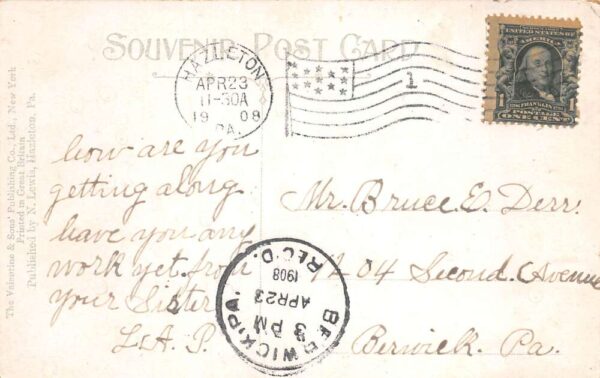 SOUVENIR POST CARD
HAZLETON
APR 23
11-30A
1908
PA.
1
UNITED STATES OF
AMERICA
1 FRANKLIN 1
POSTAGE
ONE CENT
The Valentine & Sons' Publishing Co., Ltd., New York
Printed in Great Britain
Published by N. Lewis, Hazleton, Pa.
how are you
getting along
have you any
work yet. from
your Sister
L. A. P.
Mr. Bruce E. Derr.
1204 Second. Avenue
Berwick. Pa.
BERWICK, PA.
3 PM
APR 23
1908
REC'D.